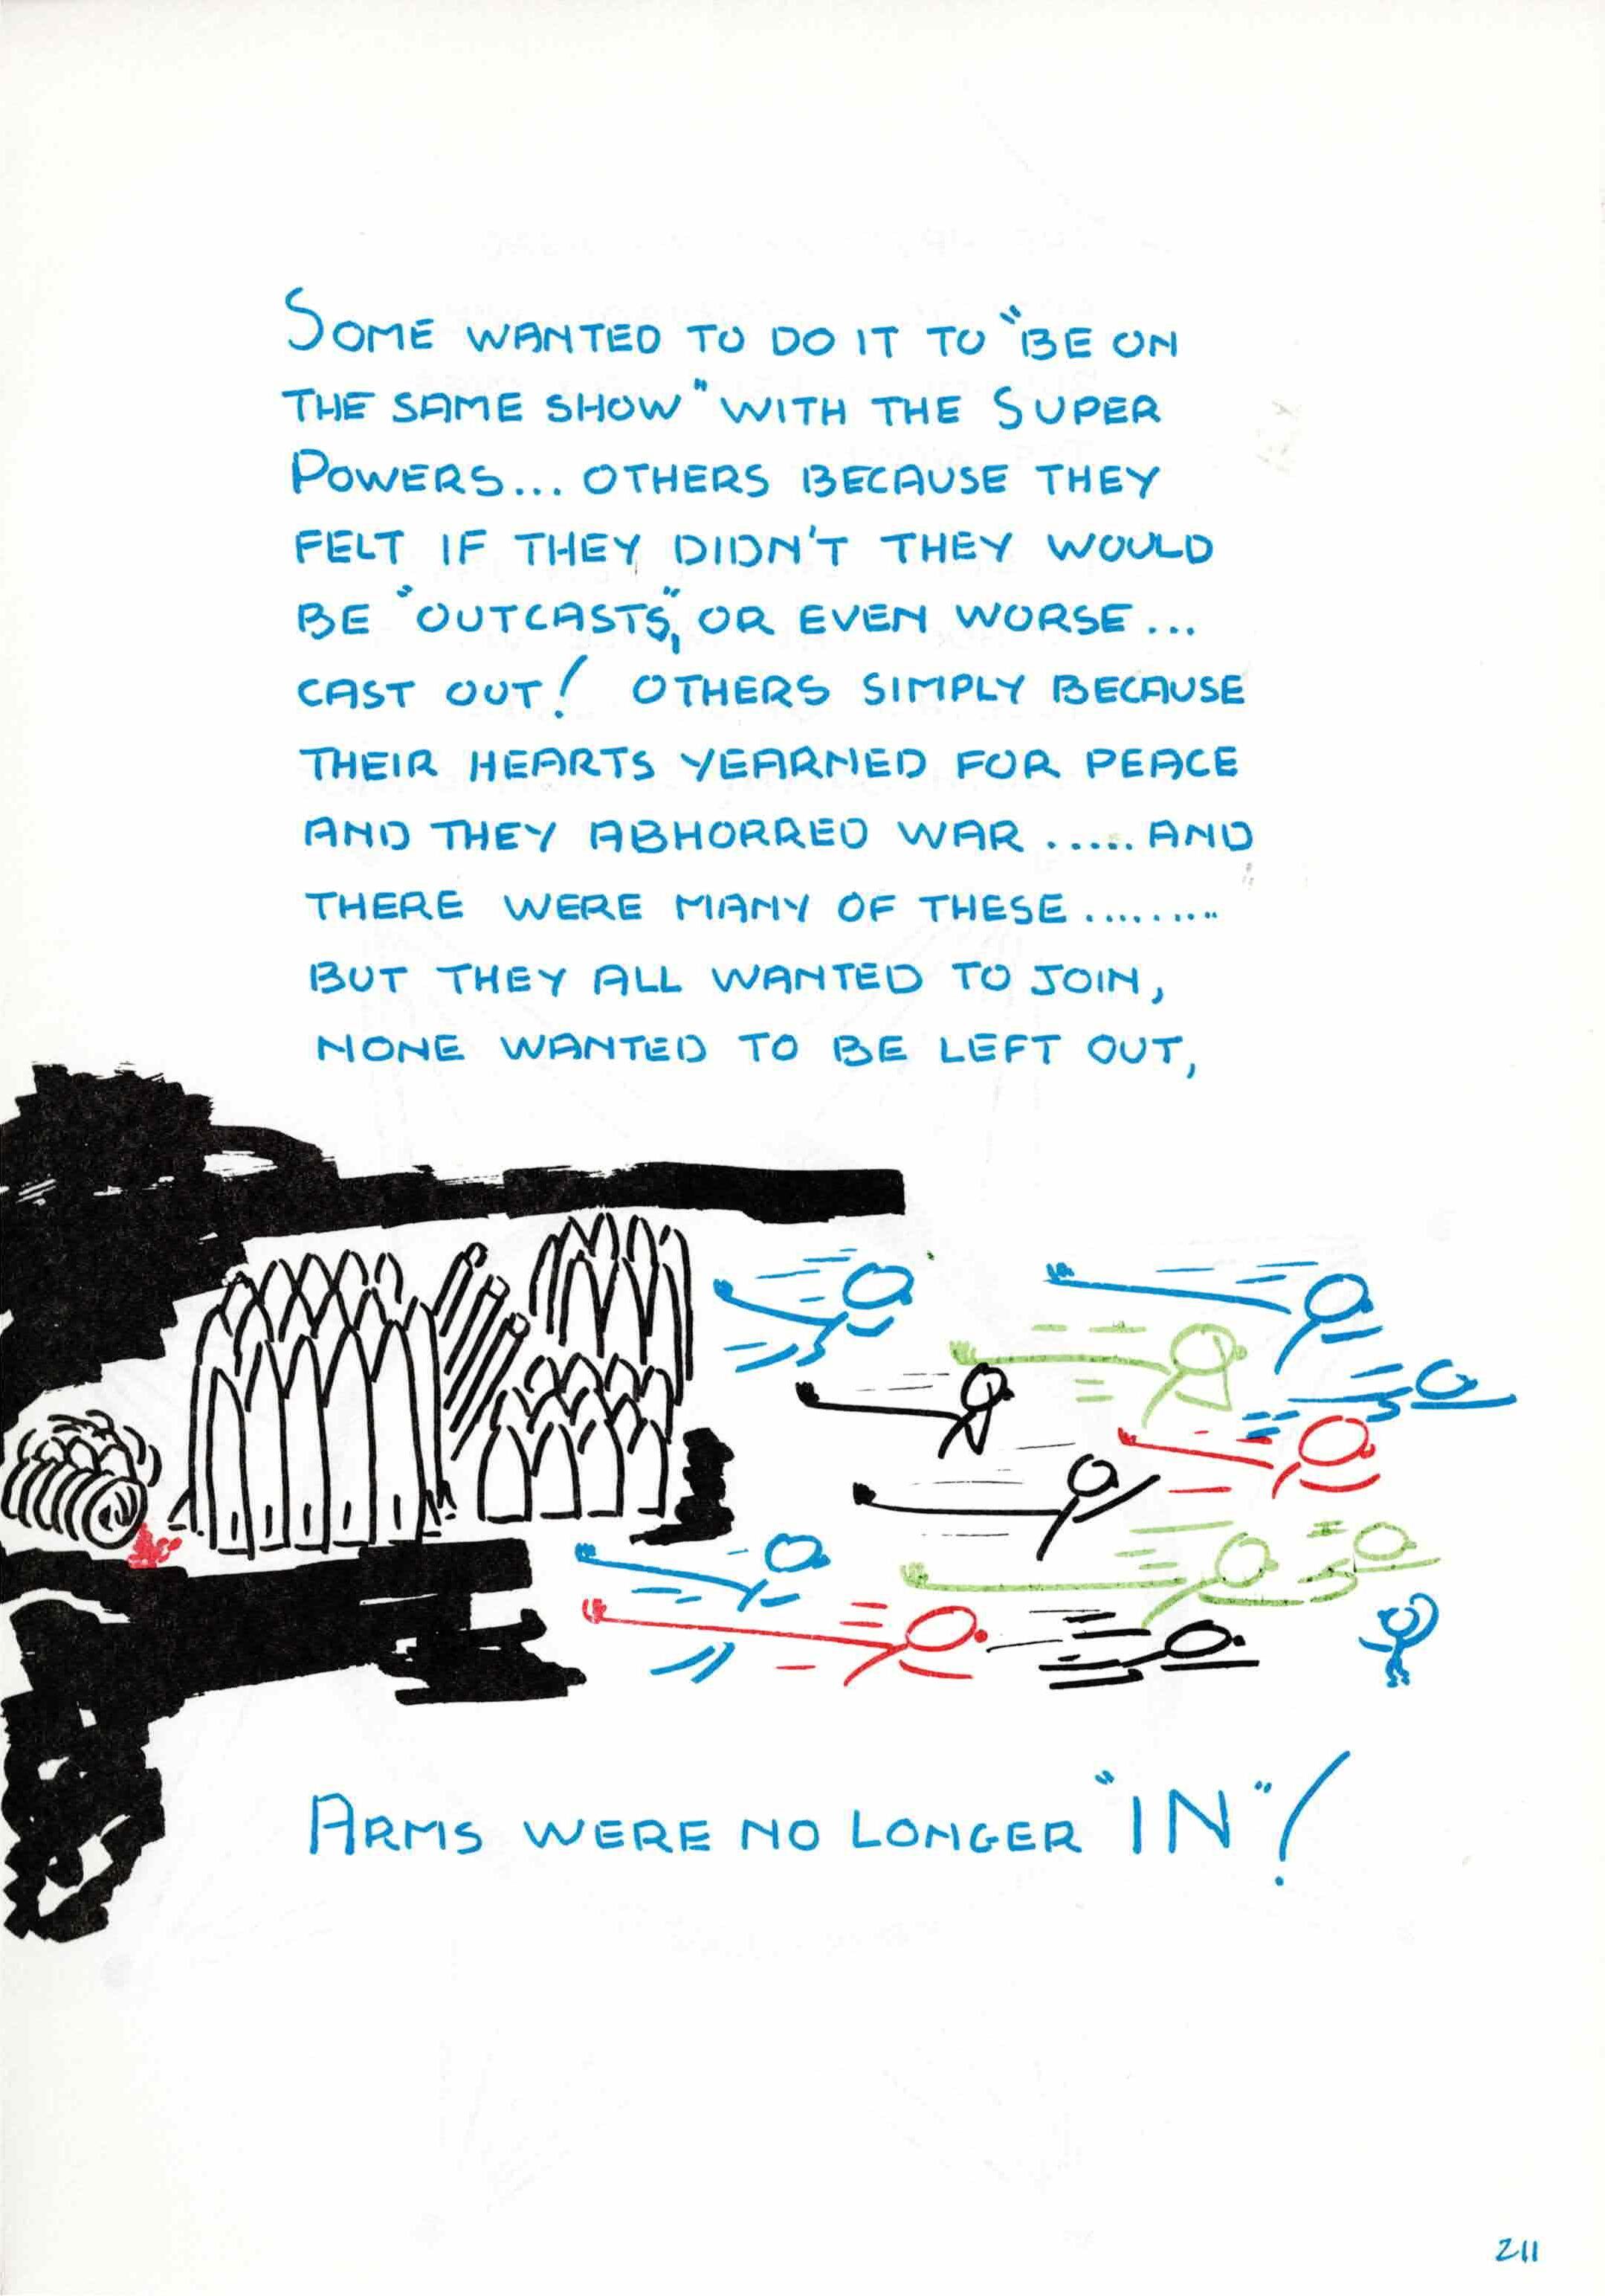 SOME WANTED TO DO IT TO "BE ON
THE SAME SHOW" WITH THE SUPER
POWERS... OTHERS BECAUSE THEY
FELT IF THEY DIDN'T THEY WOULD
BE "OUTCASTS," OR EVEN WORSE...
CAST OUT! OTHERS SIMPLY BECAUSE
THEIR HEARTS YEARNED FOR PEACE
AND THEY ABHORRED WAR ..... AND
THERE WERE MANY OF THESE .........
BUT THEY ALL WANTED TO JOIN,
NONE WANTED TO BE LEFT OUT,
ARMS WERE NO LONGER "IN"!
211